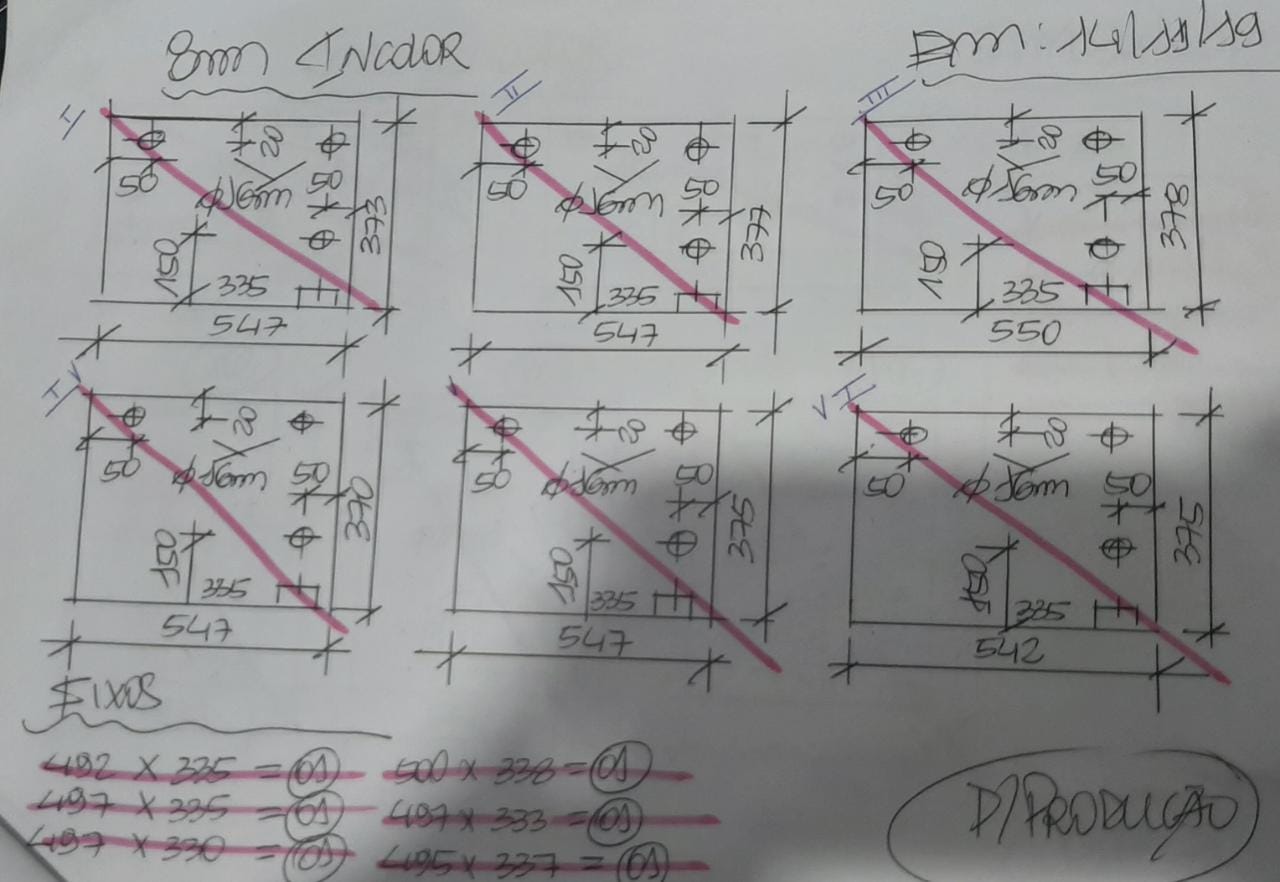 8mm INCOLOR
Em: 14/11/19
I
50
20
Φ16mm
50
373
150
335
547
II
50
20
Φ16mm
50
377
150
335
547
III
50
20
Φ16mm
50
378
150
335
550
IV
50
20
Φ16mm
50
370
150
335
547
50
20
Φ16mm
50
375
150
335
547
VI
50
20
Φ16mm
50
375
150
335
542
FIXOS
492 X 335 = 01
497 X 335 = 01
497 X 330 = 01
500 X 338 = 01
497 X 333 = 01
495 X 337 = 01
P/PRODUÇÃO